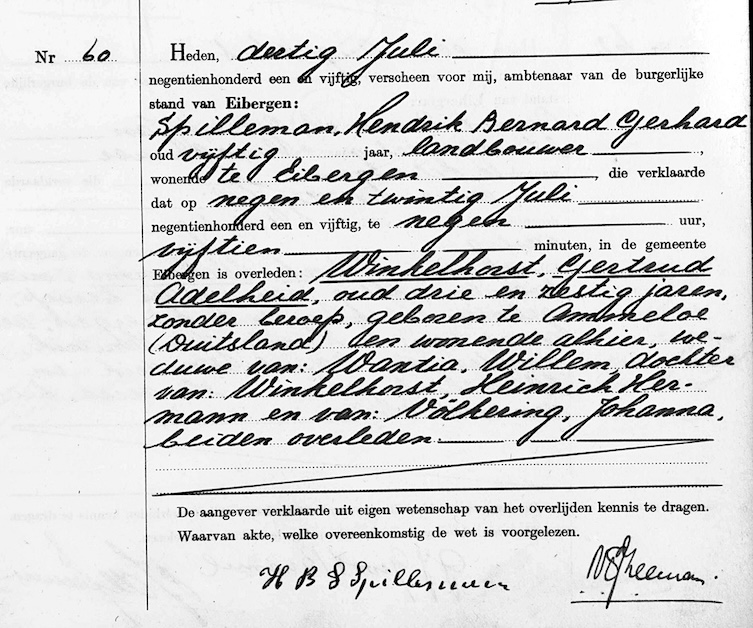 Nr 60
Heden, dertig Juli
negentienhonderd een en vijftig, verscheen voor mij, ambtenaar van de burgerlijke
stand van Eibergen:
Spilleman, Hendrik Bernard Gerhard
oud vijftig jaar, landbouwer ,
wonende te Eibergen , die verklaarde
dat op negen en twintig Juli
negentienhonderd een en vijftig, te negen uur,
vijftien minuten, in de gemeente
Eibergen is overleden: Winkelhorst, Gertrud
Adelheid, oud drie en zestig jaren,
zonder beroep, geboren te Ammeloe
(Duitsland) en wonende alhier, we-
duwe van: Wantia, Willem, dochter
van: Winkelhorst, Heinrich Her-
mann en van: Völkering, Johanna,
beiden overleden
De aangever verklaarde uit eigen wetenschap van het overlijden kennis te dragen.
Waarvan akte, welke overeenkomstig de wet is voorgelezen.
H B G Spilleman